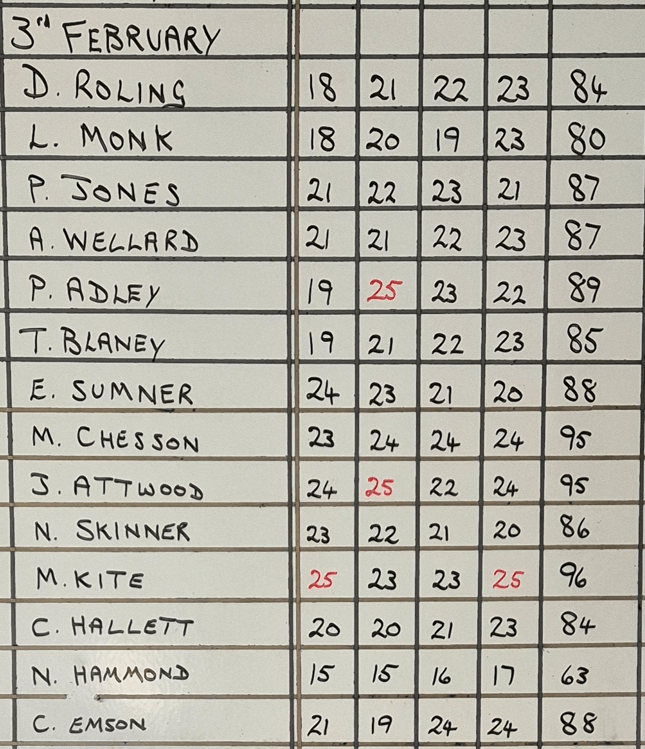 3rd FEBRUARY
D. ROLING 18 21 22 23 84
L. MONK 18 20 19 23 80
P. JONES 21 22 23 21 87
A. WELLARD 21 21 22 23 87
P. ADLEY 19 25 23 22 89
T. BLANEY 19 21 22 23 85
E. SUMNER 24 23 21 20 88
M. CHESSON 23 24 24 24 95
J. ATTWOOD 24 25 22 24 95
N. SKINNER 23 22 21 20 86
M. KITE 25 23 23 25 96
C. HALLETT 20 20 21 23 84
N. HAMMOND 15 15 16 17 63
C. EMSON 21 19 24 24 88